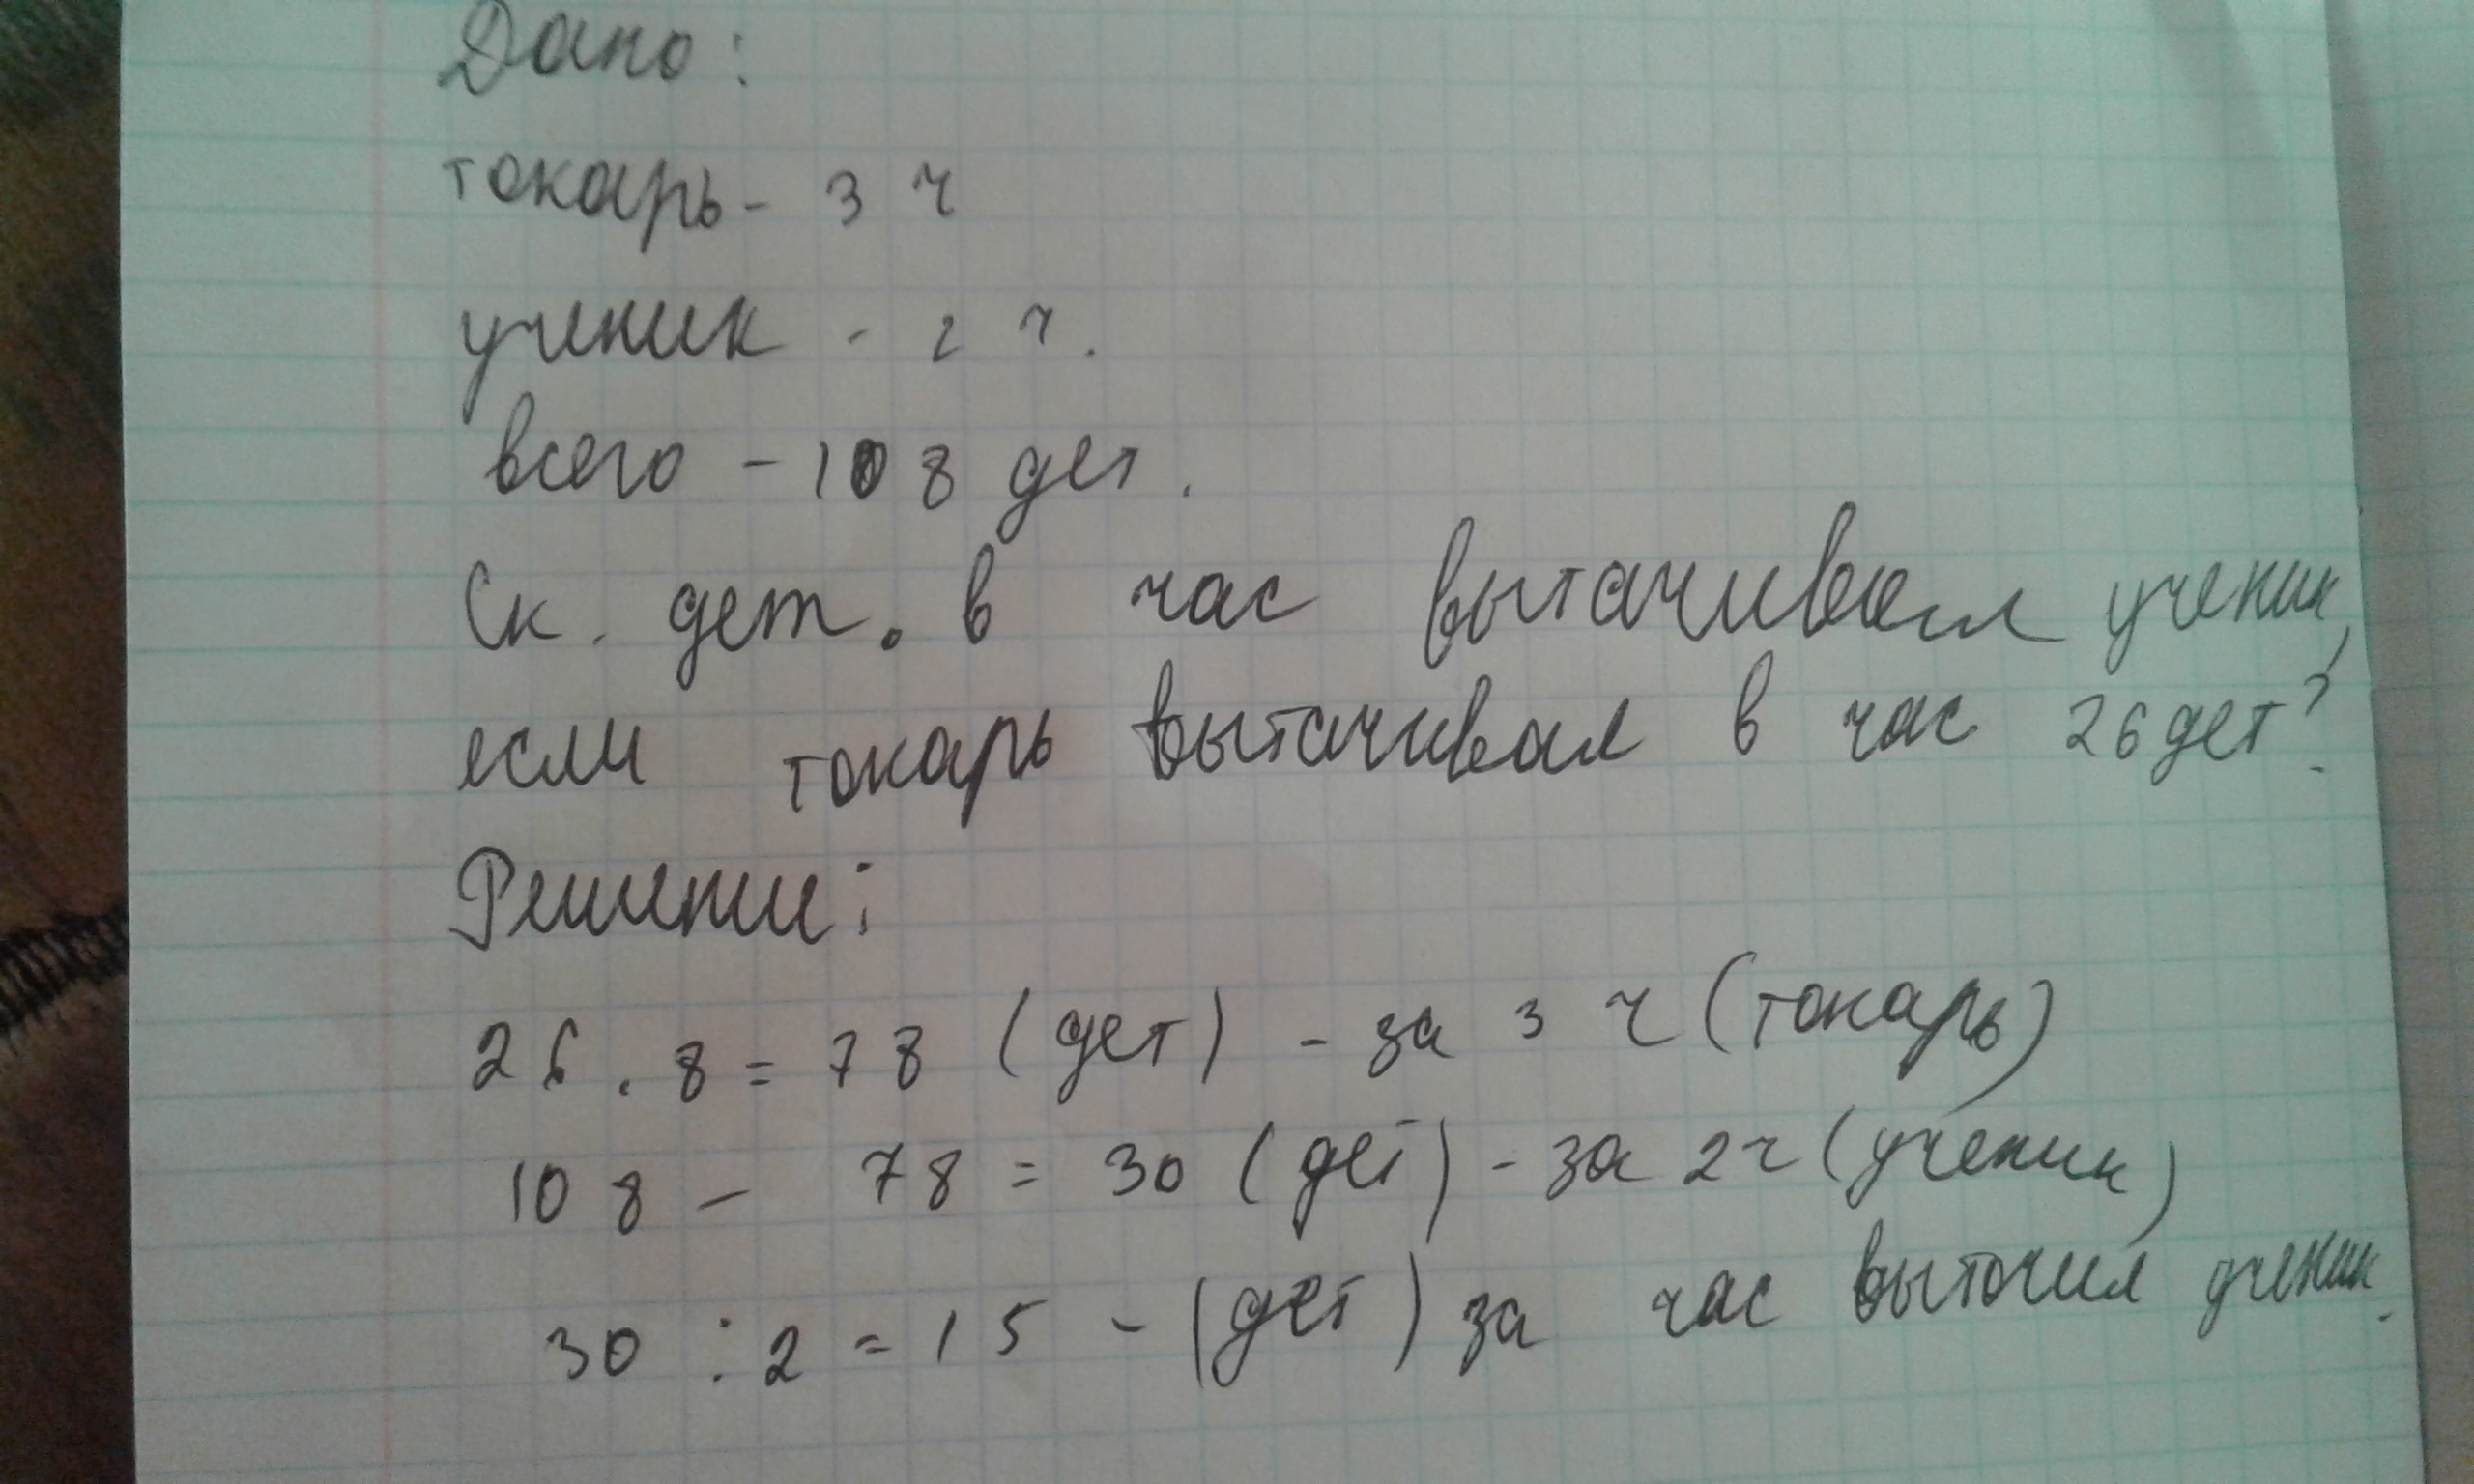 Дано:
токарь - 3 ч
ученик - 2 ч.
всего - 108 дет.
Ск. дет. в час вытачивал ученик,
если токарь вытачивал в час 26 дет?
Решение:
26 . 8 = 78 (дет) - за 3 ч (токарь)
108 - 78 = 30 (дет) - за 2 ч (ученик)
30 : 2 = 15 - (дет) за час выточил ученик.